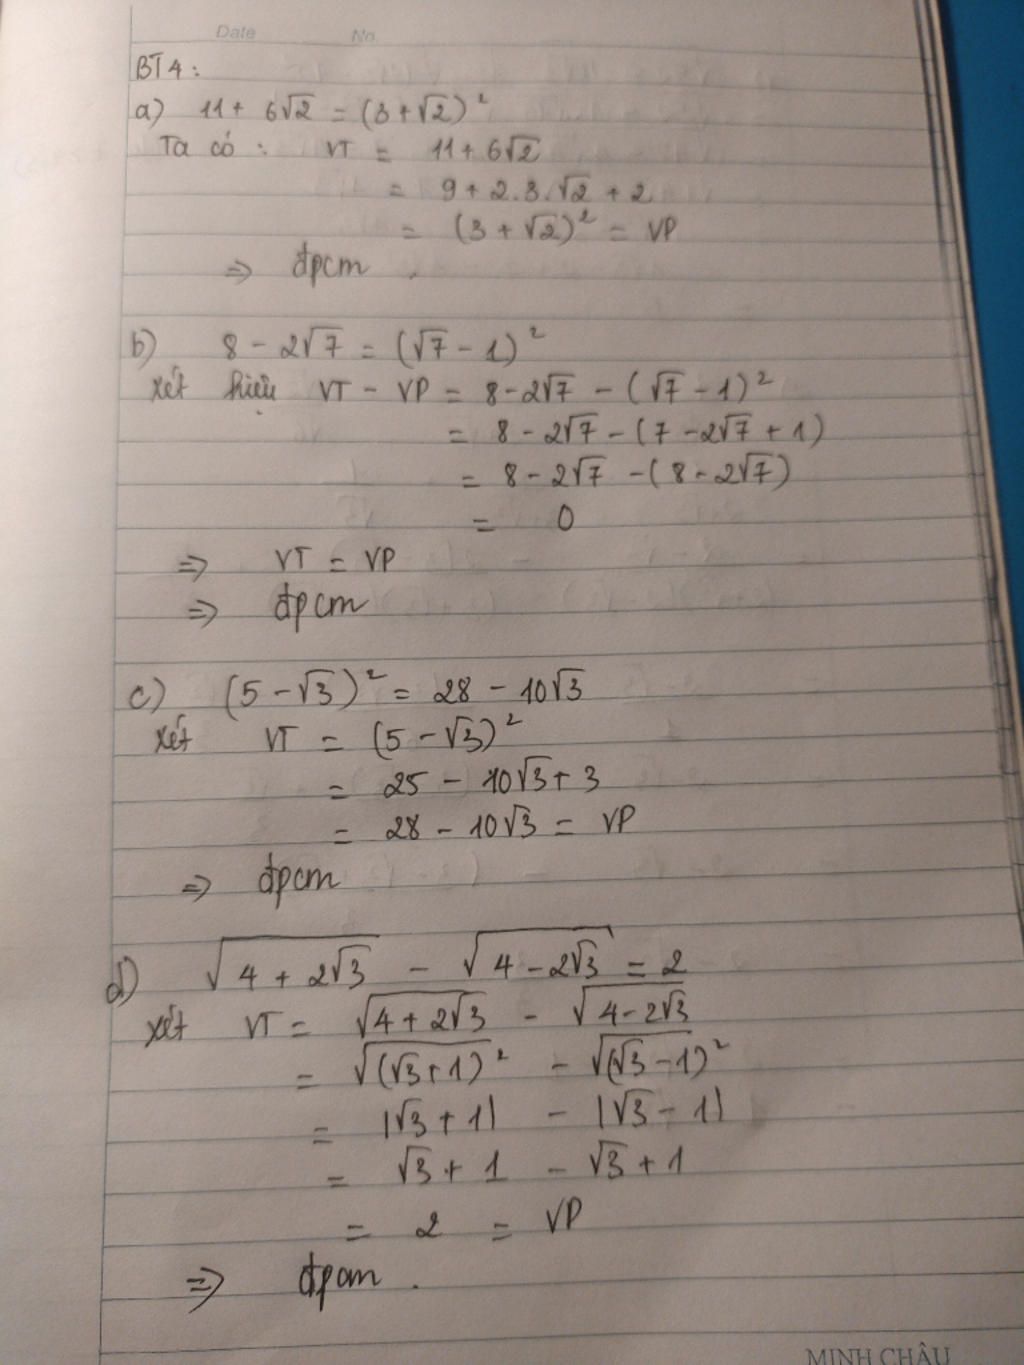 Date No.
BT4:
a) 11 + 6√2 = (3+√2)²
Ta có : VT = 11+6√2
= 9 + 2.3.√2 + 2
= (3 + √2)² = VP
⇒ đpcm .
b) 8 - 2√7 = (√7 - 1)²
Xét hiệu VT - VP = 8-2√7 - (√7 -1)²
= 8 - 2√7 - (7 -2√7 + 1)
= 8 - 2√7 - (8 - 2√7)
= 0
⇒ VT = VP
⇒ đpcm
c) (5 - √3)² = 28 - 10√3
Xét VT = (5 - √3)²
= 25 - 10√3 + 3
= 28 - 10√3 = VP
⇒ đpcm
d) √(4 + 2√3) - √(4 - 2√3) = 2
Xét VT = √(4 + 2√3) - √(4 - 2√3)
= √(√3+1)² - √(√3 -1)²
= |√3 + 1| - |√3 - 1|
= √3 + 1 - √3 + 1
= 2 = VP
⇒ đpcm .
MINH CHÂU